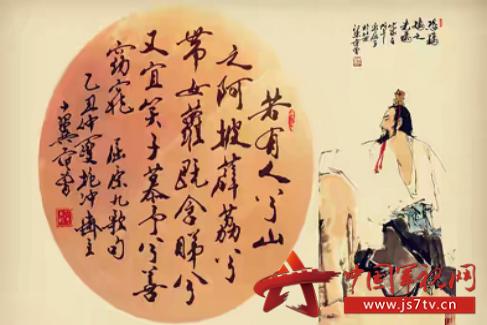 若有人兮山
之阿披薜荔兮
帶女蘿既含睇兮
又宜笑子慕予兮善
窈窕 屈原九歌句
乙丑仲夏抱冲齋主
十翼范曾
中国军视网
www.js7tv.cn